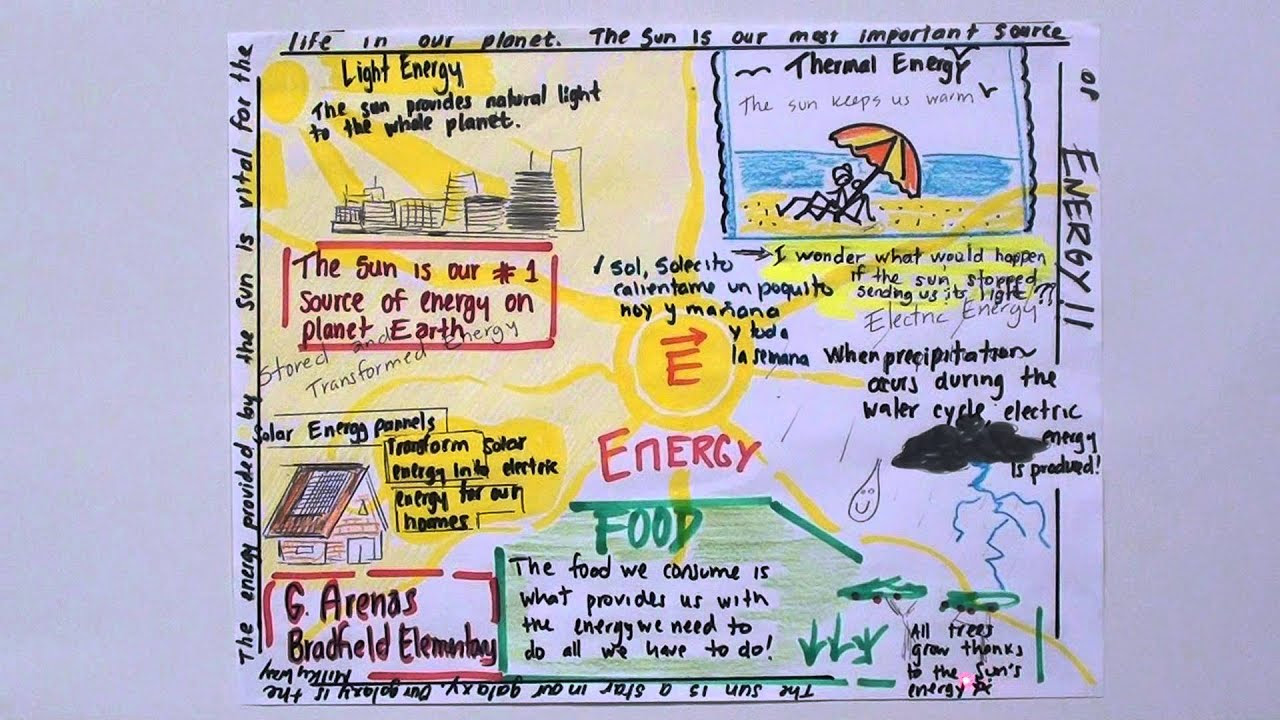 life in our planet. The Sun is our most important source
of ENERGY!!
The sun is a star in our galaxy. Our galaxy is the
Milky Way
The energy provided by the sun is vital for the
Light Energy
The sun provides natural light
to the whole planet.
Thermal Energy
The sun keeps us warm
The Sun is our #1
source of energy on
planet Earth
Stored and
Transformed Energy
Sol, solecito
calientame un poquito
hoy y mañana
y toda
la semana
I wonder what would happen
if the sun stopped
sending us its light??
Electric Energy
When precipitation
ocurs during the
water cycle, electric
energy
is produced!
E
ENERGY
Solar Energy pannels
Transform solar
energy into electric
energy for our
homes
FOOD
The food we consume is
what provides us with
the energy we need to
do all we have to do!
G. Arenas
Bradfield Elementary
All trees
grow thanks
to the Sun's
energy